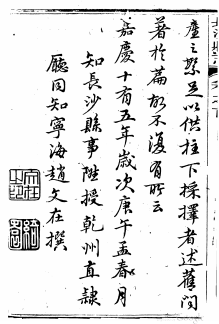 塵之繁足以供柱下採擇者述舊聞
著於篇餘不復有所云
嘉慶十有五年歲次庚午孟春月
知長沙縣事陞授乾州直隸
廳同知寧海趙文在撰